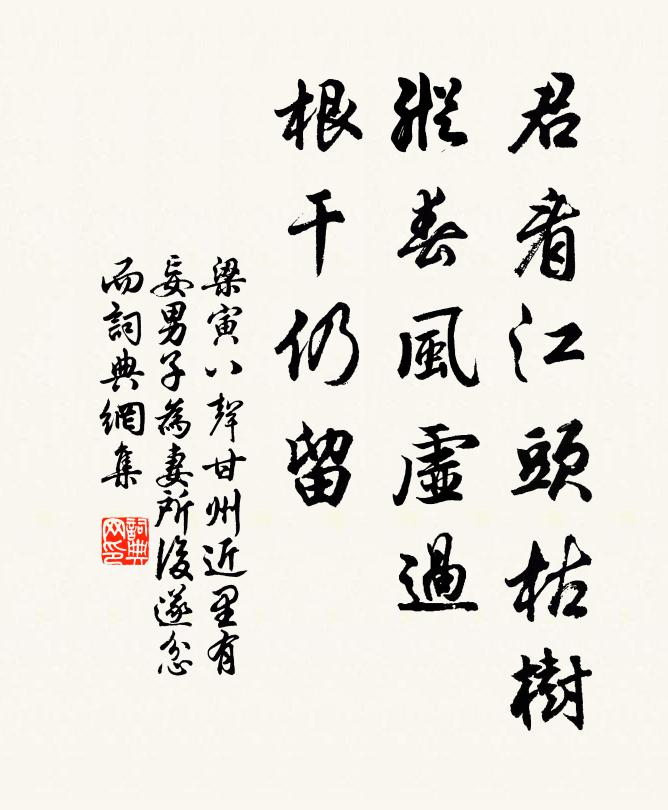 君看江頭枯樹
縱春風虛過
根干仍留
梁寅八聲甘州近里有
妄男子為妻所後遂忿
而詞典網集
詞典网印